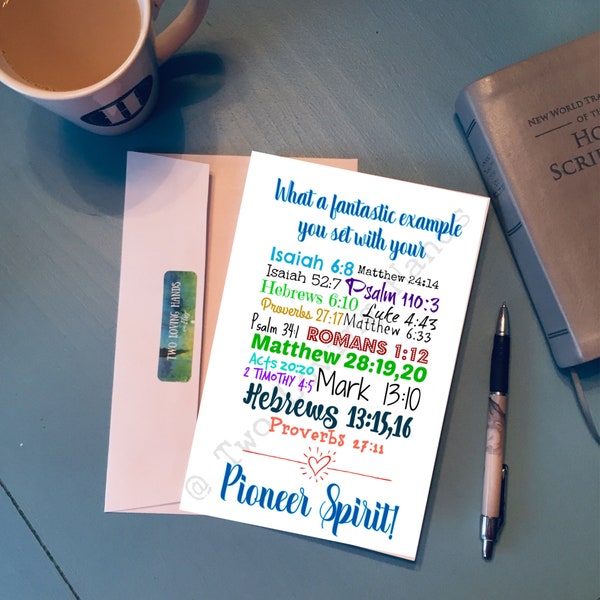 What a fantastic example
you set with your
Isaiah 6:8 Matthew 24:14
Isaiah 52:7 Psalm 110:3
Hebrews 6:10 Luke 4:43
Proverbs 27:17 Matthew 6:33
Psalm 34:1 ROMANS 1:12
Matthew 28:19,20
Acts 20:20 Mark 13:10
2 TIMOTHY 4:5
Hebrews 13:15,16
Proverbs 27:11
Pioneer Spirit!
TWO LOVING HANDS
NEW WORLD TRA
OF THE
HO
SCRIP
@ Two Hands